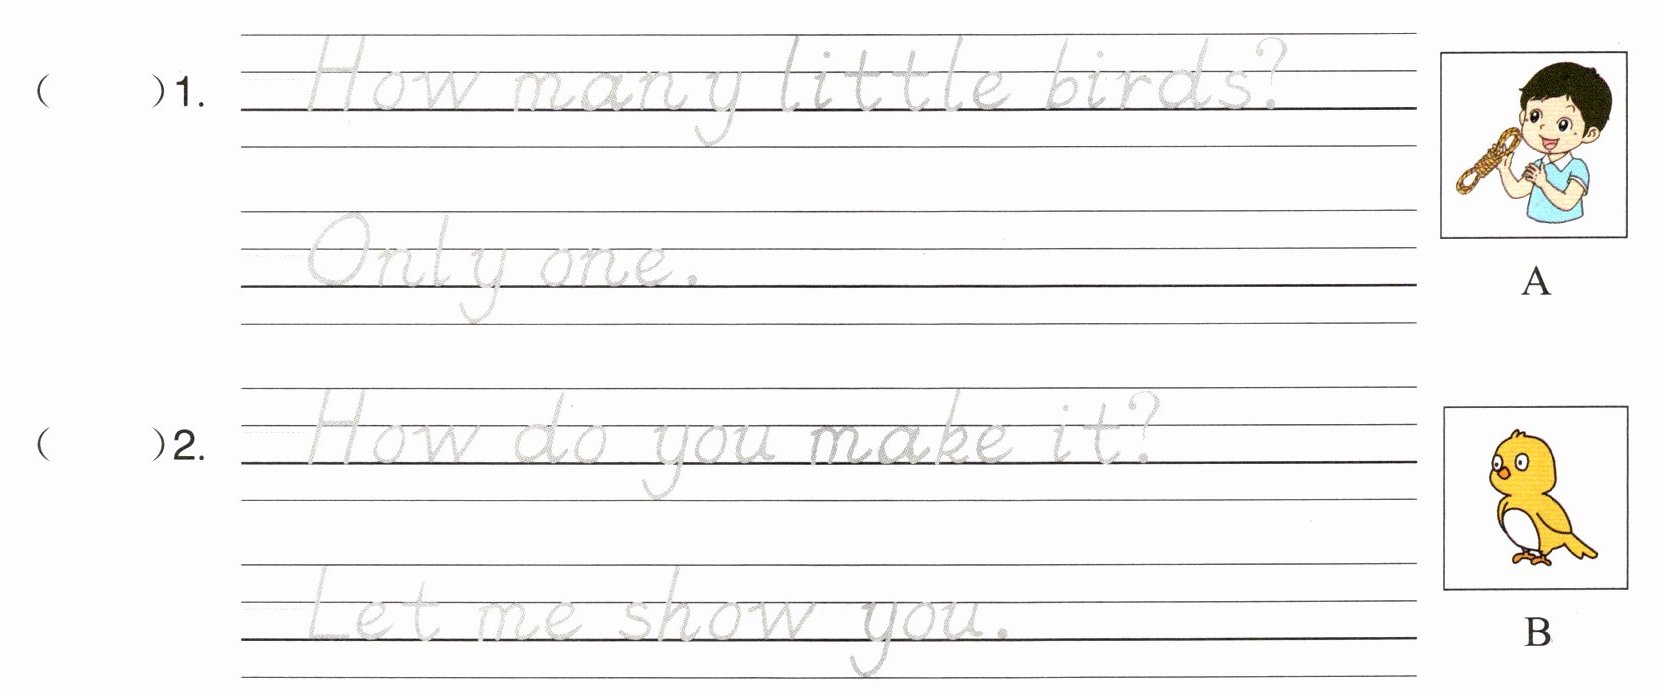 (    )1. How many little birds?
Only one.
A
(    )2. How do you make it?
Let me show you.
B